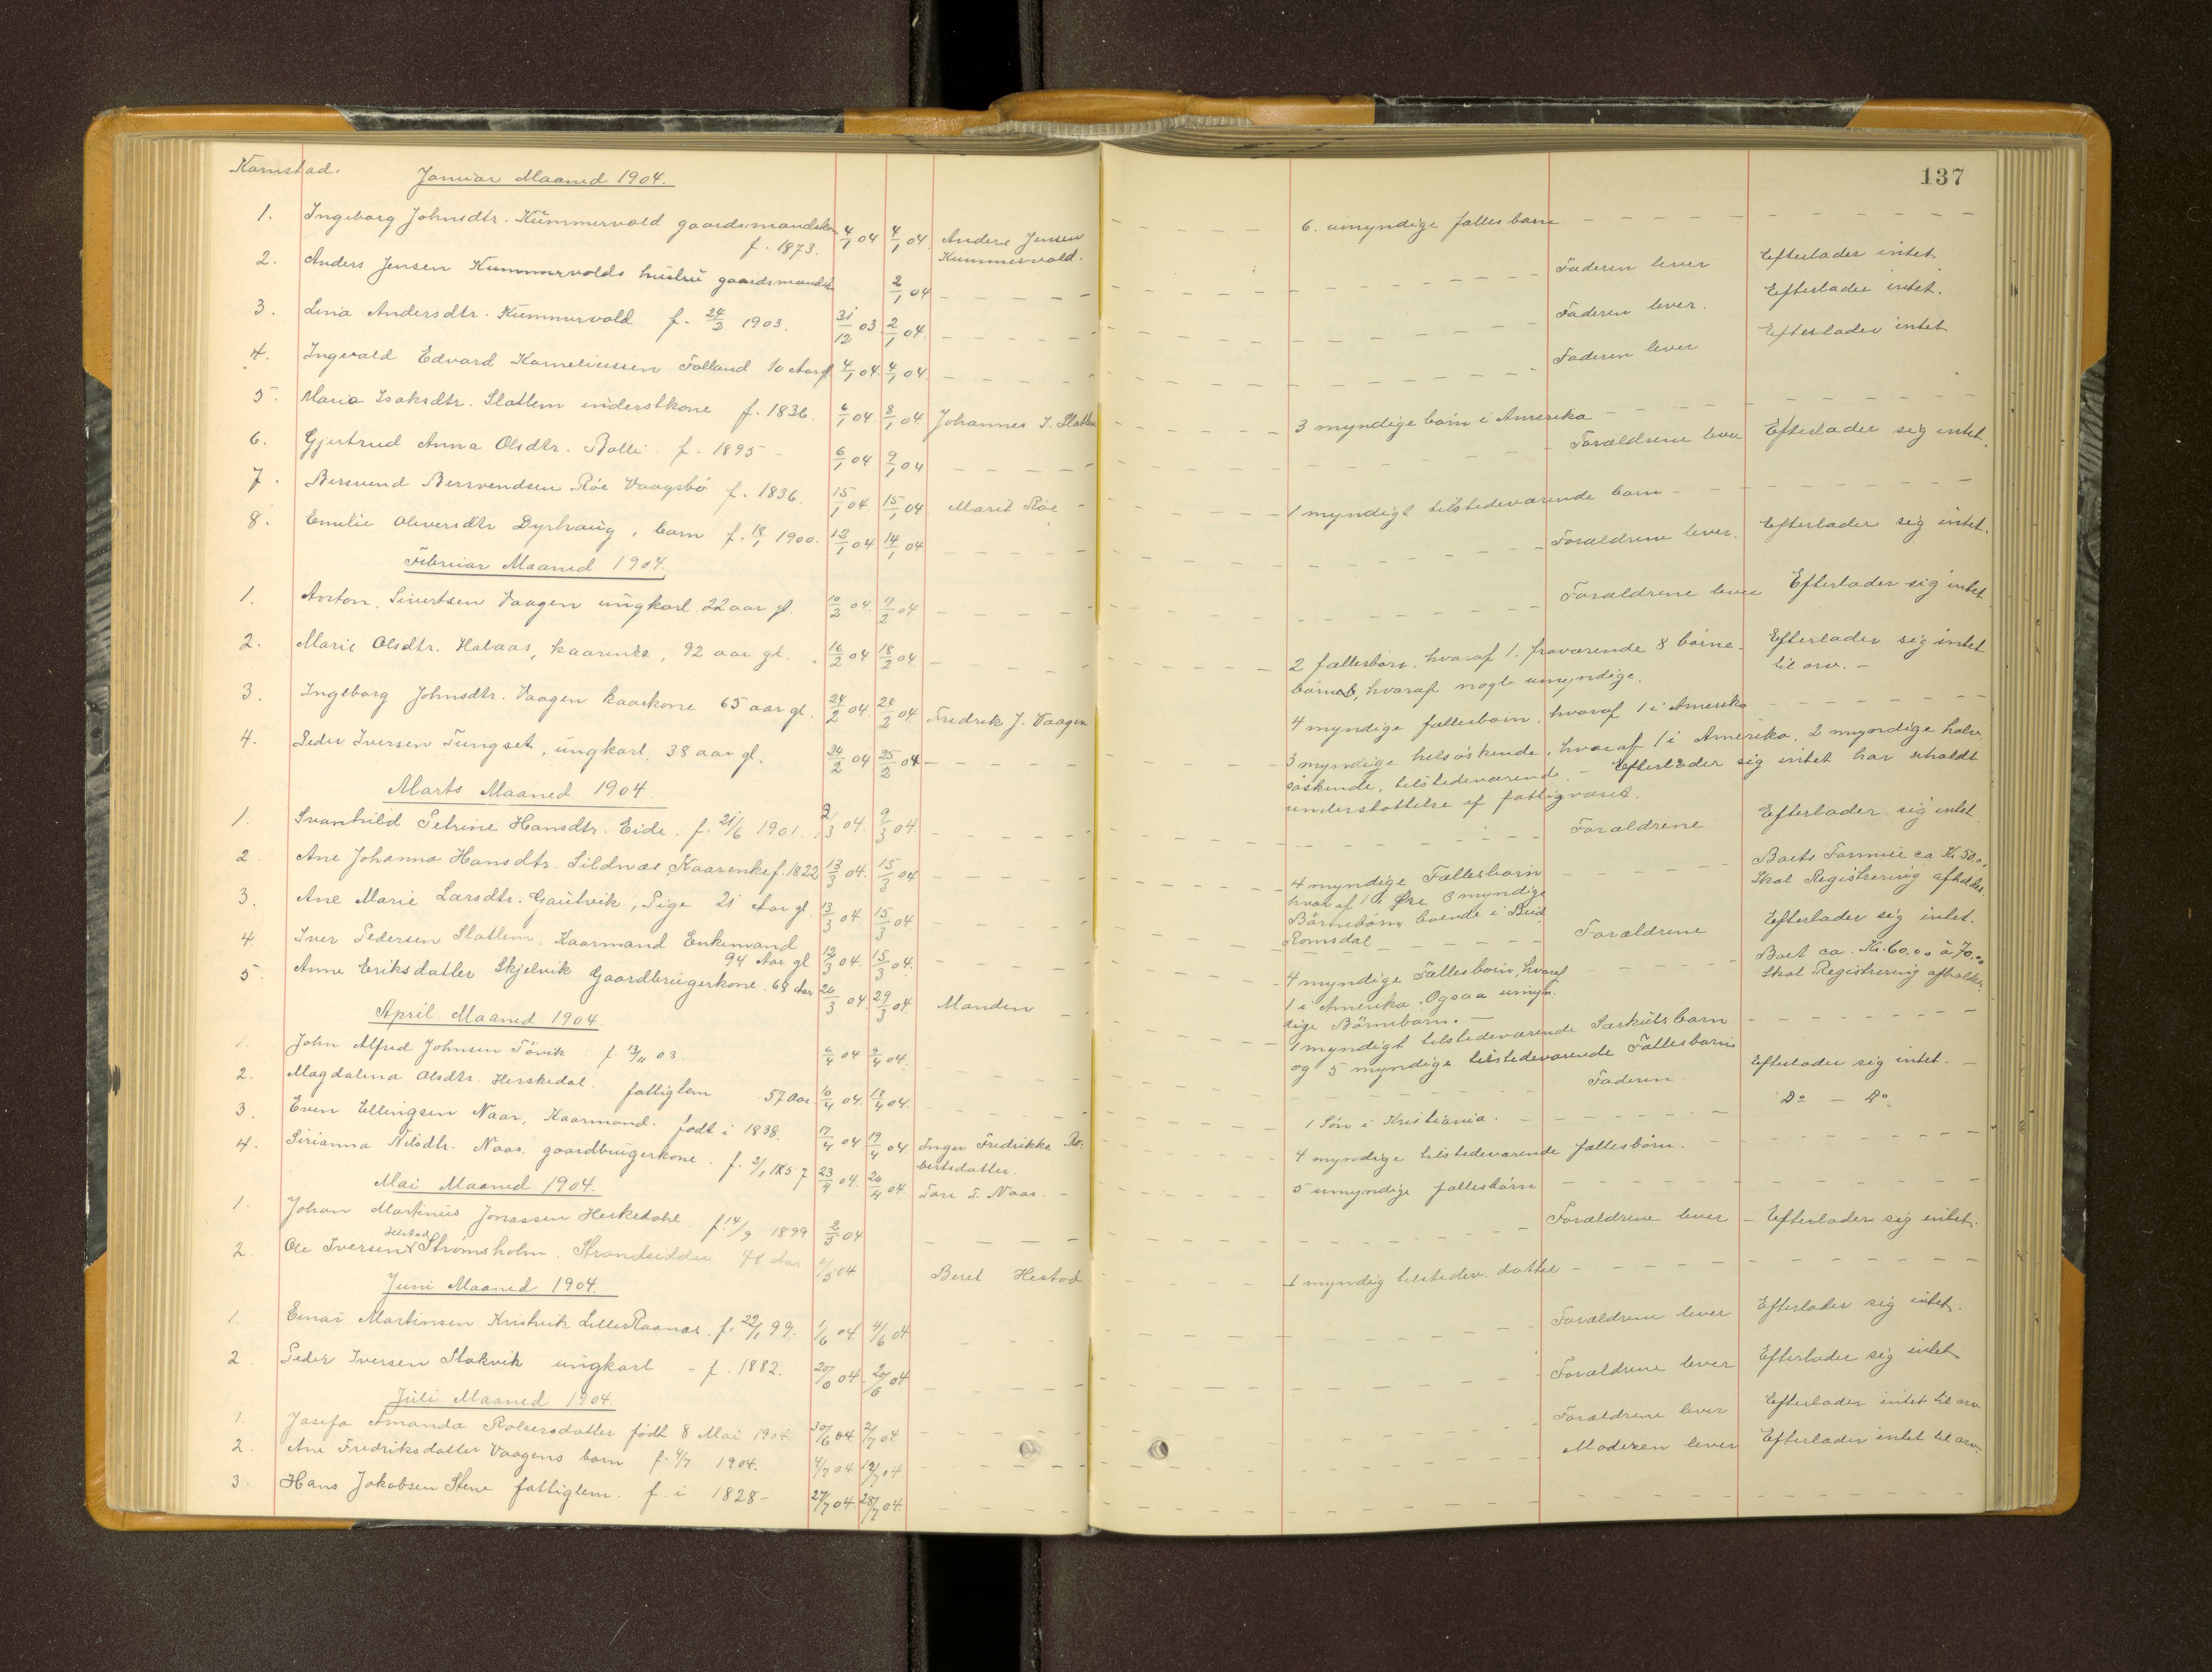 137
Januar Maaned 1904.
1. Ingeborg Johnsdtr. Kummervold gaardsmandsko 4/1 04 4/1 04. Anders Jensen 6. umyndige fællesbarn
f. 1873. Kummervold.
2. Anders Jensen Kummervolds hustru gaardsmands 2/1 04 Faderen lever Efterlader intet
3. Lina Andersdtr. Kummervold f. 24/2 1903. 31/12 03. 2/1 04. Faderen lever. Efterlader intet.
4. Ingevald Edvard Korneliussen Folland 10 Aar gl 4/1 04. 4/1 04. Faderen lever Efterlader intet
5. Maria Isaksdtr. Slatlem inderstkone f. 1836. 6/1 04 8/1 04. Johannes I. Slatlem 3 myndige børn i Amerika
6. Gjertrud Anna Olsdtr. Bolli. f. 1895 6/1 04 9/1 04 Forældrene lever Efterlader sig intet.
7. Bersvend Bersvendsen Röe Vaagsbö f. 1836. 15/1 04. 15/1 04 Marit Röe 1 myndigt tilstedeværende barn
8. Emilie Oliversdtr Dyrhaug, barn f. 18/1 1900. 12/1 04 14/1 04 Forældrene lever. Efterlader sig intet.
Februar Maaned 1904.
1. Anton Sivertsen Vaagen ungkarl 22 aar gl. 10/2 04. 11/2 04 Forældrene lever Efterlader sig intet
2. Marie Olsdtr. Halaas, kaarenke, 92 aar gl. 16/2 04 18/2 04. 2 fællesbörn. hvoraf 1. fraværende 8 börne- Efterlader sig intet
börn, hvoraf nogle umyndige. til arv.
3. Ingeborg Johnsdtr. Vaagen kaarkone 65 aar gl. 24/2 04. 24/2 04. Fredrik J. Vaagen 4 myndige fællesbörn, hvoraf 1 i Amerika
4. Peder Iversen Tungset, ungkarl, 38 aar gl. 24/2 04 25/2 04 3 myndige helsöskende, hvoraf 1 i Amerika, 2 myndige halv
söskende, tilstedeværende. Efterlader sig intet har erholdt
understøttelse af fattigvæset.
Marts Maaned 1904.
1. Svanhild Petrine Hansdtr. Eide. f. 21/6 1901. 9/3 04. 9/3 04. Forældrene Efterlader sig intet
2. Ane Johanna Hansdtr. Sildnæs, Kaarenke f. 1822 13/3 04. 15/3 04 4 myndige Fællesbörn Boets Formue ca Kr. 50.
hvoraf 1 i Øre 3 myndige Skal Registrering afholdes.
Börnebörn boende i Bud
Romsdal
3. Ane Marie Larsdtr. Gautvik, Pige 21 Aar gl. 13/3 04. 15/3 04. Forældrene Efterlader sig intet.
4. Iver Pedersen Slatlem, Kaarmand Enkemand 12/3 04. 15/3 04. 4 myndige Fællesbörn, hvoraf Boet ca. Kr. 60.00 à 70.00
94 Aar gl 1 i Amerika. Ogsaa umyn- Skal Registrering afholdes.
dige Börnebörn.
5. Anne Eriksdatter Skjelvik Gaardbrugerkone. 68 Aar 26/3 04. 29/3 04. Manden 1 myndigt tilstedeværende Særkulsbarn
og 5 myndige tilstedeværende Fællesbörn
April Maaned 1904.
1. John Alfred Johnsen Tövik f. 13/11 03. 6/4 04 9/4 04. Faderen. Efterlader sig intet.
2. Magdalena Olsdtr. Herskedal. fattiglem 57 Aar 10/4 04. 13/4 04. 1 Sön i Kristiania. Do Do
3. Even Ellingsen Naas, Kaarmand. født i 1838. 17/4 04 19/4 04. Inger Fredrikke Ro- 4 myndige tilstedeværende fællesbörn.
bertsdatter.
4. Sirianna Nilsdtr. Naas. gaardbrugerkone. f. 2/1 1857 23/4 04. 26/4 04. Tore T. Naas. 5 umyndige fællesbörn
Mai Maaned 1904.
1. Johan Martinus Jonassen Herskedahl f. 14/9 1899 2/5 04 Forældrene lever Efterlader sig intet.
2. Ole Iversen Strømsholm. Strandsidder 78 Aar. 1/5 04 Beret Hestad 1 myndig tilstedev. datter
Juni Maaned 1904.
1. Einar Martinsen Kristvik Lille Raanæs. f. 22/1 99. 1/6 04 4/6 04 Forældrene lever Efterlader sig intet.
2. Peder Iversen Stokvik ungkarl f. 1882. 20/6 04 20/6 04 Forældrene lever Efterlader sig intet
Juli Maaned 1904.
1. Josefa Amanda Roleivsdatter født 8 Mai 1904. 30/6 04 2/7 04. Forældrene lever Efterlader intet til arv
2. Ane Fredriksdatter Vaagens barn f. 4/7 1904. 4/7 04 12/7 04. Moderen lever Efterlader intet til arv.
3. Hans Jakobsen Stene fattiglem. f. i 1828 27/7 04. 28/7 04.